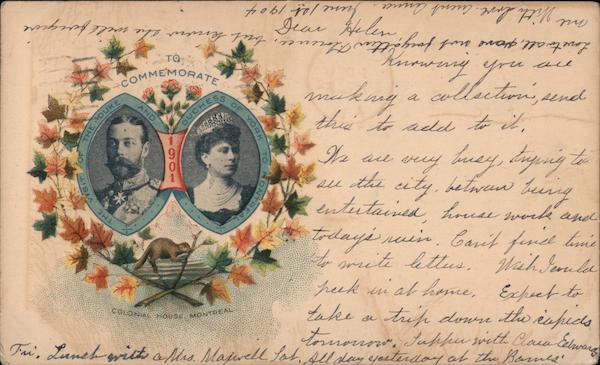 TO
COMMEMORATE
THE VISIT OF THE DUKE AND DUCHESS OF YORK TO CANADA
1901
COLONIAL HOUSE, MONTREAL
Dear Helen
Knowing you are
making a collection, send
this to add to it.
We are very busy, trying to
see the city, between being
entertained, house work and
today's rain. Can't find time
to write letters. Wish I could
peek in at home. Expect to
take a trip down the rapids
tomorrow. Supper with Clara Edwards
Fri. Lunch with a Mrs. Maxwell Sat. All day yesterday at the Barnes'
Love to all
one
With love Aunt Anna. June 1st 1904